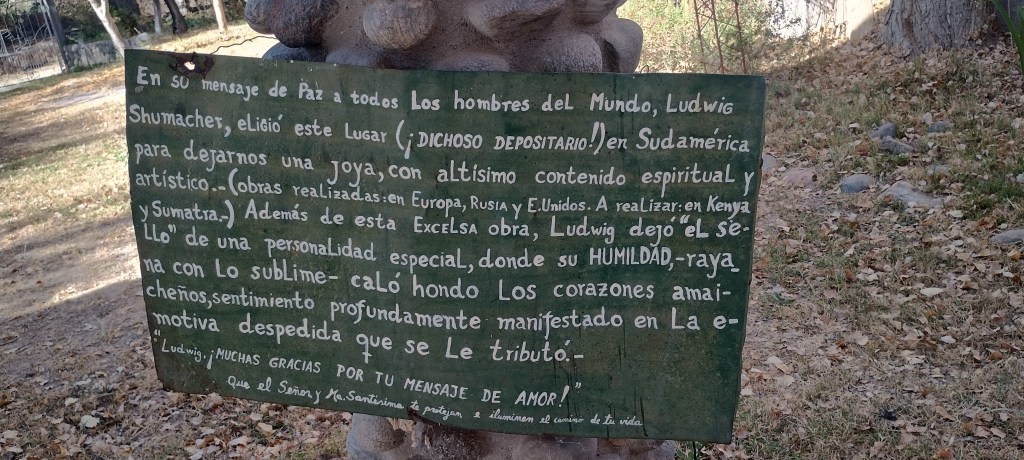 En su mensaje de Paz a todos Los hombres deL Mundo, Ludwig
Shumacher, eLigió este Lugar (¡DICHOSO DEPOSITARIO!) en Sudamérica
para dejarnos una joya, con altísimo contenido espirituaL y
artístico.-(obras realizadas: en Europa, Rusia y E.Unidos. A realizar: en Kenya
y Sumatra.-) Además de esta EXCELSA obra, Ludwig dejó "eL se-
LLo" de una personalidad especial, donde su HUMILDAD,-raya_
na con Lo sublime- caLó hondo Los corazones amai-
cheños, sentimiento profundamente manifestado en La e-
motiva despedida que se Le tributó.-
"Ludwig. ¡MUCHAS GRACIAS POR TU MENSAJE DE AMOR!"
Que el Señor y Ma. Santísima te protejan e iluminen el camino de tu vida